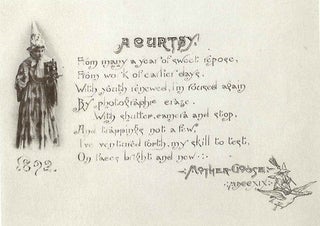 A CURTSY.
From many a year of sweet repose,
From work of earlier days,
With youth renewed, I'm roused again
By photographic craze.
With shutter, camera and stop,
And trappings not a few,
I've ventured forth, my skill to test,
On faces bright and new.
MOTHER GOOSE.
1892.